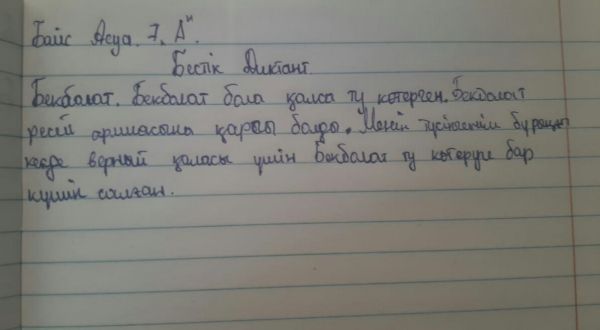 Байс Асуа. 7. А"
Бестік Диктант
Бекболат. Бекболат бала қалса ту көтерген. Бекболат
ресей армасына қарсы болды. Менің түсінгенім бұрынғы
кезде верный қаласы үшін Бекболат ту көтеруге бар
күшін салған.